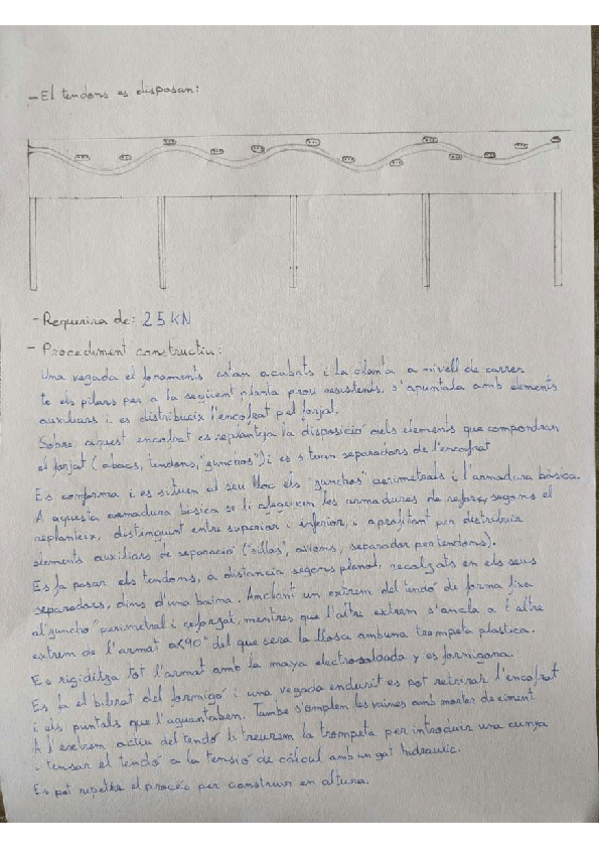 - El tendons es disposan:
- Requerira de: 25 KN
- Procediment constructiu:
Una vegada el fonaments estan acabats i la planta a nivell de carrer
te els pilars per a la següent planta prou resistents, s'apuntala amb elements
auxiliars i es distribueix l'encofrat pel forjat.
Sobre aquest encofrat es replanteja la disposició dels elements que compondran
el forjat (abacs, tendons, "gunchos") i es situen separadors de l'encofrat
Es conforma i es situen al seu lloc els "gunchos" perimetrals i l'armadura bàsica.
A aquesta armadura bàsica se li afegeixen les armadures de reforç, segons el
replanteix, distinguint entre superior i inferior, i aprofitant per distribuir
elements auxiliars de separació ("sillas", separador per tendons).
Es fa pasar els tendons, a distancia segons plànol, recalzats en els seus
separadors, dins d'una baina. Anclant un extrem del tendó de forma fixa
al "guncho" perimetral i reforzat, mentres que l'altre extrem s'ancla a l'altre
extrem de l'armat α<90° del que sera la llosa amb una trompeta plastica.
Es rigiditza tot l'armat amb la maya electrosoldada y es formigona.
Es fa el vibrat del formigó i una vegada endurit es pot retirar l'encofrat
i els puntals que l'aguantaben. Tambe s'omplen les vaines amb morter de ciment
A l'extrem actiu del tendó li treurem la trompeta per introduir una cunya
i tensar el tendó a la tensió de càlcul amb un gat hidraulic.
Es pot repetir el procés per construir en altura.